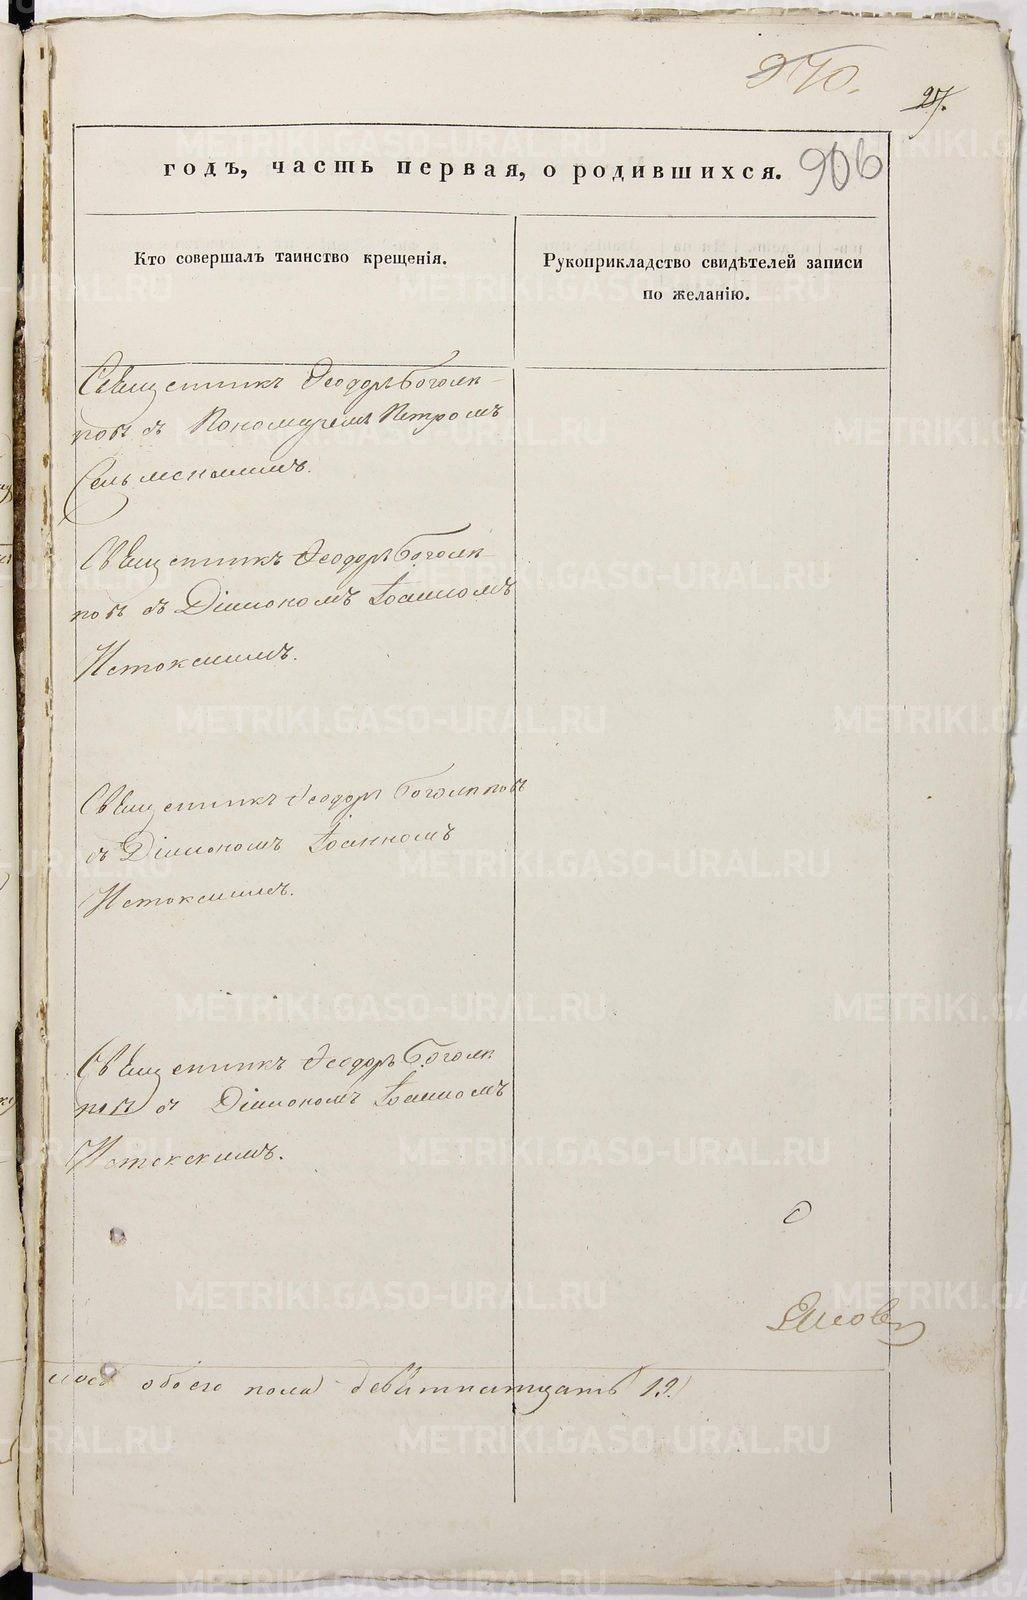 970.
27.
906
годъ, часть первая, о родившихся.
Кто совершалъ таинство крещенія.
Рукоприкладство свидѣтелей записи
по желанію.
Священникъ Ѳеодоръ Боголѣ-
повъ съ Пономаремъ Петромъ
Сельменскимъ.
Священникъ Ѳеодоръ Боголѣ
повъ съ Діакономъ Іоанномъ
Истокскимъ.
Священникъ Ѳеодоръ Боголѣповъ
съ Діакономъ Іоанномъ
Истокскимъ.
Священникъ Ѳеодоръ Боголѣ
повъ съ Діакономъ Іоанномъ
Истокскимъ.
обоего пола девятнатцать 19.
METRIKI.GASO-URAL.RU